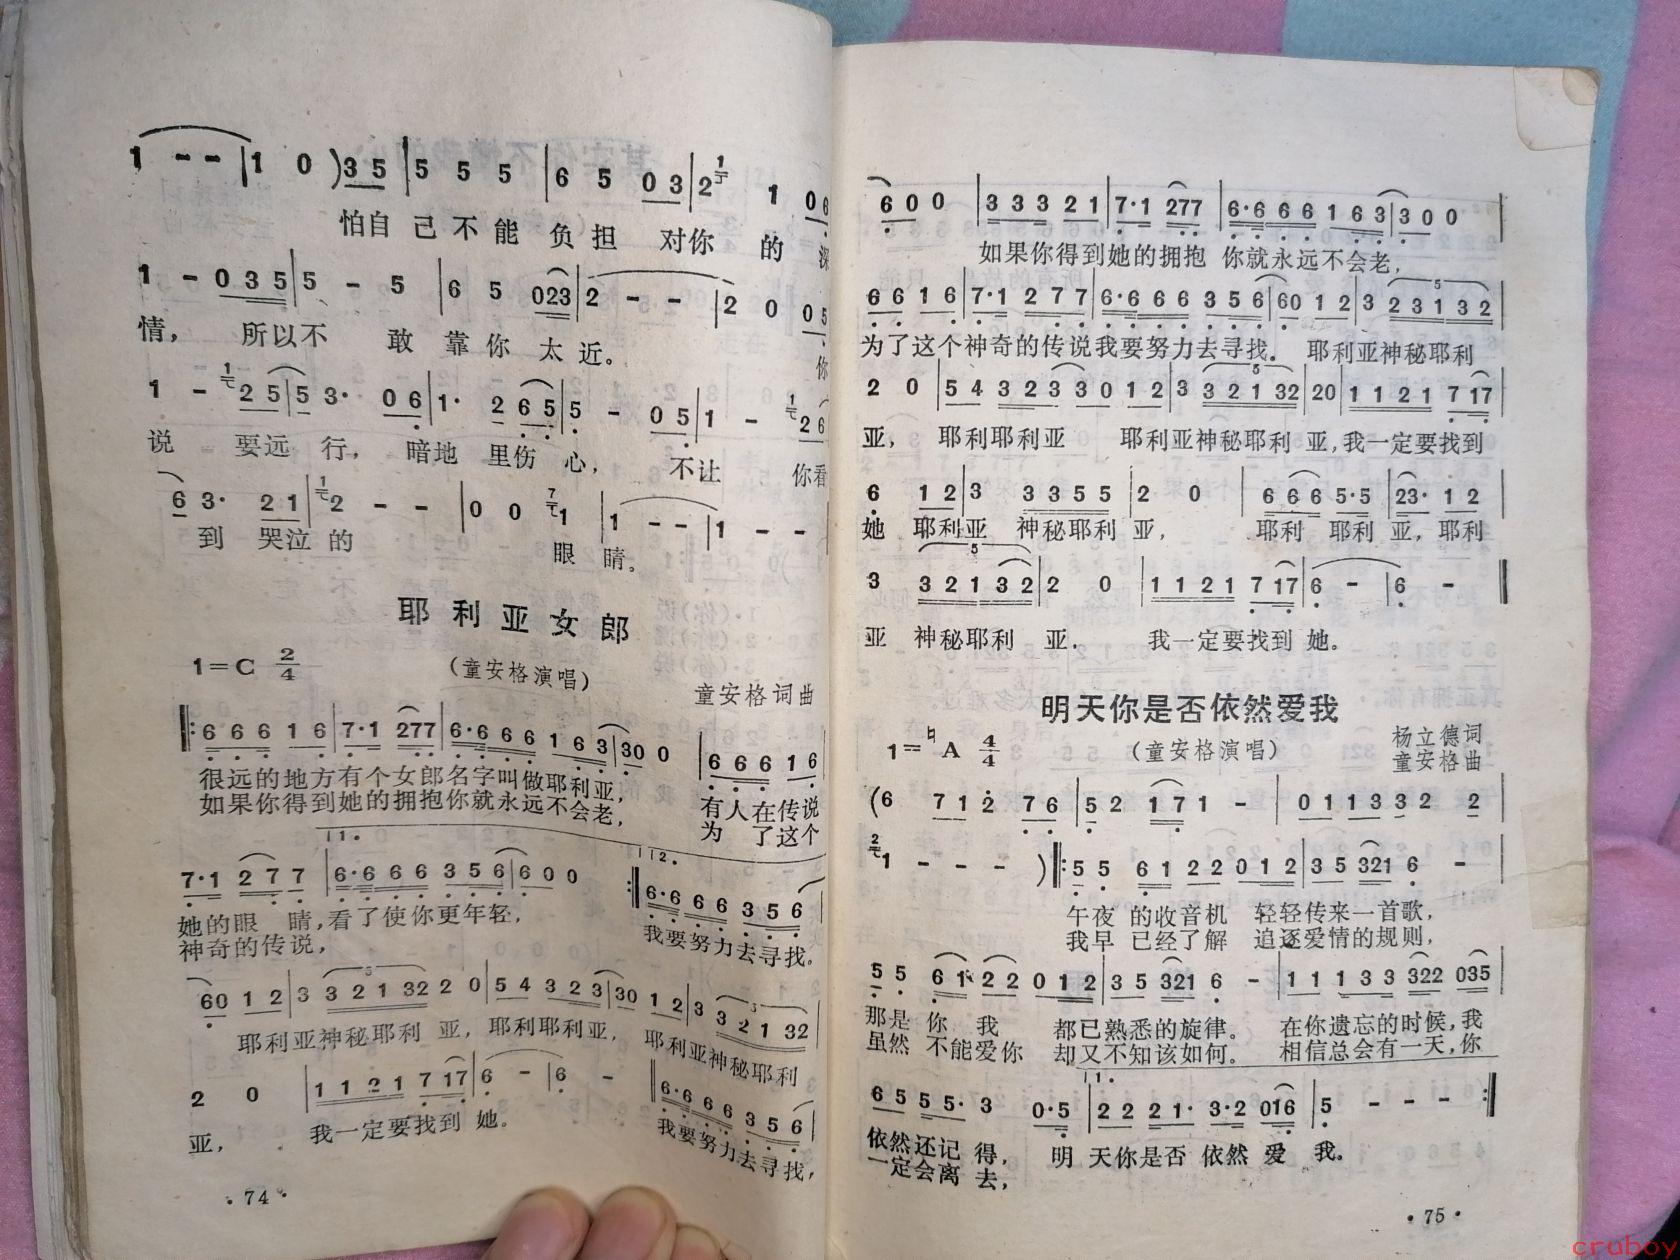 1 - - | 1 0 ) 3 5 | 5 5 5 | 6 5 0 3 | 2 1 0 6
怕自 己 不 能 负 担 对你 的 深
1 - 0 3 5 | 5 - 5 | 6 5 0 2 3 | 2 - - | 2 0 0 5
情， 所以不 敢 靠 你 太 近。 你
1 - 2 5 | 5 3· 0 6 | 1· 2 6 5 | 5 - 0 5 | 1 - 2 6
说 要远 行， 暗地 里伤 心， 不让 你看
6 3· 2 1 | 2 - - | 0 0 1 | 1 - - | 1 - -
到 哭泣 的 眼 睛。
耶利亚女郎
1=C 2/4 （童安格演唱）
童安格词曲
6 6 6 1 6 | 7·1 277 | 6·6 6 6 1 6 3 | 30 0 | 6 6 6 1 6
很远的地方有个女郎名字叫做耶利亚， 有人在传说
如果你得到她的拥抱你就永远不会老， 为 了这个
1. 2.
7·1 2 7 7 | 6·6 6 6 3 5 6 | 6 0 0 :| 6·6 6 6 3 5 6
她的眼 睛，看了使你更年轻， 我要努力去寻找。
神奇的传说，
60 1 2 | 3 3 2 1 32 | 2 0 | 5 4 3 2 3 | 30 1 2 | 3 3 2 1 32
耶利亚神秘耶利 亚，耶利耶利亚， 耶利亚神秘耶利
2 0 | 1 1 2 1 7 17 | 6 - | 6 - | 6·6 6 6 3 5 6
亚， 我一定要找到 她。 我要努力去寻找，
·74·
6 0 0 | 3 3 3 2 1 | 7·1 277 | 6·6 6 6 1 6 3 | 3 0 0
如果你得到她的拥抱 你就永远不会老，
6 6 1 6 | 7·1 2 7 7 | 6·6 6 6 3 5 6 | 60 1 2 | 3 2 3 1 3 2
为了这个神奇的传说我要努力去寻找． 耶利亚神秘耶利
2 0 | 5 4 3 2 3 | 3 0 1 2 | 3 3 2 1 32 | 20 | 1 1 2 1 7 17
亚， 耶利耶利亚 耶利亚神秘耶利 亚，我一定要找到
6 1 2 | 3 3 3 5 5 | 2 0 | 6 6 6 5·5 | 23· 1 2
她 耶利亚 神秘耶利 亚， 耶利 耶利 亚，耶利
3 3 2 1 3 2 | 2 0 | 1 1 2 1 7 17 | 6 - | 6 - ‖
亚 神秘耶利 亚． 我一定要找到 她。
明天你是否依然爱我
1=♮A 4/4 （童安格演唱） 杨立德词
童安格曲
(6 7 1 2 7 6 | 5 2 1 7 1 - | 0 1 1 3 3 2 2
1 - - - ) ‖: 5 5 6 1 2 2 0 1 2 | 3 5 321 6 -
午夜 的收音机 轻轻传来一首歌，
我早 已经了解 追逐爱情的规则，
5 5 6 1 2 2 0 1 2 | 3 5 321 6 - | 1 1 1 3 3 322 035
那是 你 我 都已熟悉的旋律。 在你遗忘的时候，我
虽然 不能爱你 却又不知该如何。 相信总会有一天，你
1.
6 5 5 5· 3 0·5 | 2 2 2 1· 3·2 016 | 5 - - - :‖
依然还记 得， 明 天你是否 依然 爱 我．
一定会离 去，
·75·
cruboy